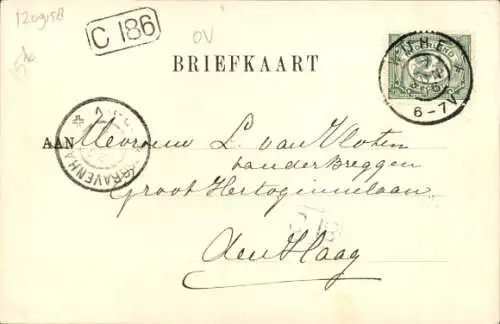 120958
C 186
OV
BRIEFKAART
NEDERLAND
6-7V
AAN Mevrouw L. van Vloten
van der Breggen
Groot Hertoginnelaan
C 186
den Haag